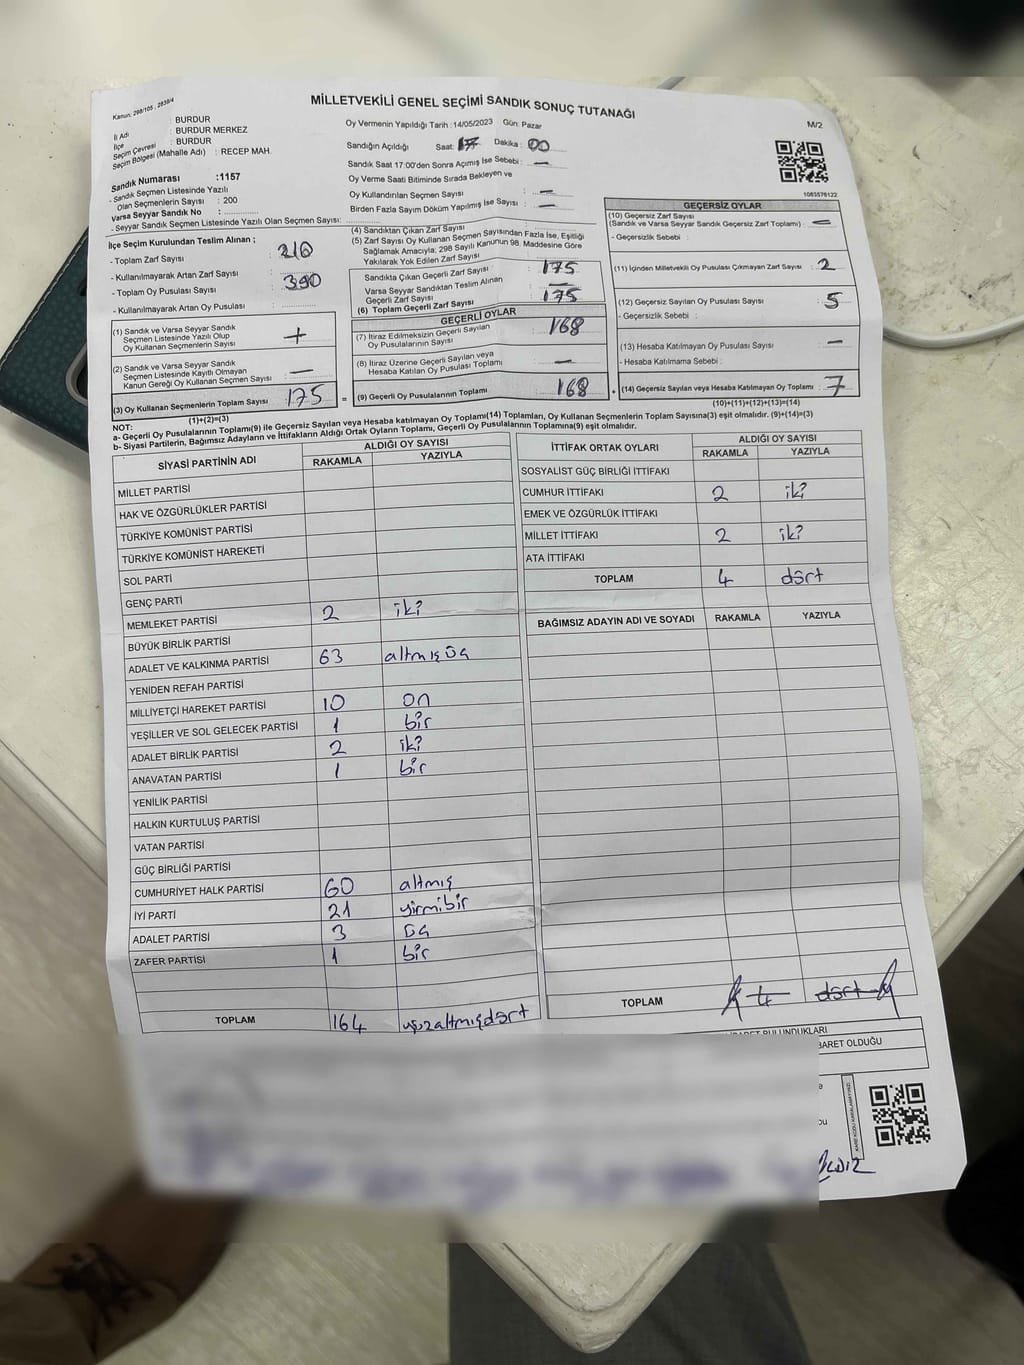 Kanun: 298/105, 2839/4
MİLLETVEKİLİ GENEL SEÇİMİ SANDIK SONUÇ TUTANAĞI
M/2
İl Adı : BURDUR
İlçe : BURDUR MERKEZ
Seçim Çevresi : BURDUR
Seçim Bölgesi (Mahalle Adı) : RECEP MAH.
Sandık Numarası :1157
- Sandık Seçmen Listesinde Yazılı
Olan Seçmenlerin Sayısı : 200
Varsa Seyyar Sandık No :
- Seyyar Sandık Seçmen Listesinde Yazılı Olan Seçmen Sayısı:
Oy Vermenin Yapıldığı Tarih : 14/05/2023 Gün: Pazar
Sandığın Açıldığı Saat: 17 Dakika : 00
Sandık Saat 17:00'den Sonra Açımış İse Sebebi : —
Oy Verme Saati Bitiminde Sırada Bekleyen ve
Oy Kullandırılan Seçmen Sayısı : —
Birden Fazla Sayım Döküm Yapılmış İse Sayısı : —
1083578122
İlçe Seçim Kurulundan Teslim Alınan ;
- Toplam Zarf Sayısı : 210
- Kullanılmayarak Artan Zarf Sayısı :
- Toplam Oy Pusulası Sayısı : 390
- Kullanılmayarak Artan Oy Pusulası :
(1) Sandık ve Varsa Seyyar Sandık
Seçmen Listesinde Yazılı Olup
Oy Kullanan Seçmenlerin Sayısı : +
(2) Sandık ve Varsa Seyyar Sandık
Seçmen Listesinde Kayıtlı Olmayan
Kanun Gereği Oy Kullanan Seçmen Sayısı : —
(3) Oy Kullanan Seçmenlerin Toplam Sayısı : 175
(1)+(2)=(3)
(4) Sandıktan Çıkan Zarf Sayısı :
(5) Zarf Sayısı Oy Kullanan Seçmen Sayısından Fazla İse, Eşitliği
Sağlamak Amacıyla; 298 Sayılı Kanunun 98. Maddesine Göre
Yakılarak Yok Edilen Zarf Sayısı :
Sandıkta Çıkan Geçerli Zarf Sayısı : 175
Varsa Seyyar Sandıktan Teslim Alınan
Geçerli Zarf Sayısı : —
(6) Toplam Geçerli Zarf Sayısı : 175
GEÇERLİ OYLAR
(7) İtiraz Edilmeksizin Geçerli Sayılan
Oy Pusulalarının Sayısı : 168
(8) İtiraz Üzerine Geçerli Sayılan veya
Hesaba Katılan Oy Pusulası Toplamı : —
= (9) Geçerli Oy Pusulalarının Toplamı : 168
GEÇERSİZ OYLAR
(10) Geçersiz Zarf Sayısı
(Sandık ve Varsa Seyyar Sandık Geçersiz Zarf Toplamı) : —
- Geçersizlik Sebebi :
(11) İçinden Milletvekili Oy Pusulası Çıkmayan Zarf Sayısı : 2
(12) Geçersiz Sayılan Oy Pusulası Sayısı : 5
- Geçersizlik Sebebi :
(13) Hesaba Katılmayan Oy Pusulası Sayısı : —
- Hesaba Katılmama Sebebi :
+ (14) Geçersiz Sayılan veya Hesaba Katılmayan Oy Toplamı : 7
(10)+(11)+(12)+(13)=(14)
NOT:
a- Geçerli Oy Pusulalarının Toplamı(9) ile Geçersiz Sayılan veya Hesaba katılmayan Oy Toplamı(14) Toplamları, Oy Kullanan Seçmenlerin Toplam Sayısına(3) eşit olmalıdır. (9)+(14)=(3)
b- Siyasi Partilerin, Bağımsız Adayların ve İttifakların Aldığı Ortak Oyların Toplamı, Geçerli Oy Pusulalarının Toplamına(9) eşit olmalıdır.
SİYASİ PARTİNİN ADI ALDIĞI OY SAYISI
RAKAMLA YAZIYLA
MİLLET PARTİSİ
HAK VE ÖZGÜRLÜKLER PARTİSİ
TÜRKİYE KOMÜNİST PARTİSİ
TÜRKİYE KOMÜNİST HAREKETİ
SOL PARTİ
GENÇ PARTİ
MEMLEKET PARTİSİ 2 iki
BÜYÜK BİRLİK PARTİSİ
ADALET VE KALKINMA PARTİSİ 63 altmış üç
YENİDEN REFAH PARTİSİ
MİLLİYETÇİ HAREKET PARTİSİ 10 on
YEŞİLLER VE SOL GELECEK PARTİSİ 1 bir
ADALET BİRLİK PARTİSİ 2 iki
ANAVATAN PARTİSİ 1 bir
YENİLİK PARTİSİ
HALKIN KURTULUŞ PARTİSİ
VATAN PARTİSİ
GÜÇ BİRLİĞİ PARTİSİ
CUMHURİYET HALK PARTİSİ 60 altmış
İYİ PARTİ 21 yirmibir
ADALET PARTİSİ 3 üç
ZAFER PARTİSİ 1 bir
TOPLAM 164 yüzaltmışdört
İTTİFAK ORTAK OYLARI ALDIĞI OY SAYISI
RAKAMLA YAZIYLA
SOSYALİST GÜÇ BİRLİĞİ İTTİFAKI
CUMHUR İTTİFAKI 2 iki
EMEK VE ÖZGÜRLÜK İTTİFAKI
MİLLET İTTİFAKI 2 iki
ATA İTTİFAKI
TOPLAM 4 dört
BAĞIMSIZ ADAYIN ADI VE SOYADI RAKAMLA YAZIYLA
TOPLAM 4 dört
BULUNDUKLARI
BARET OLDUĞU